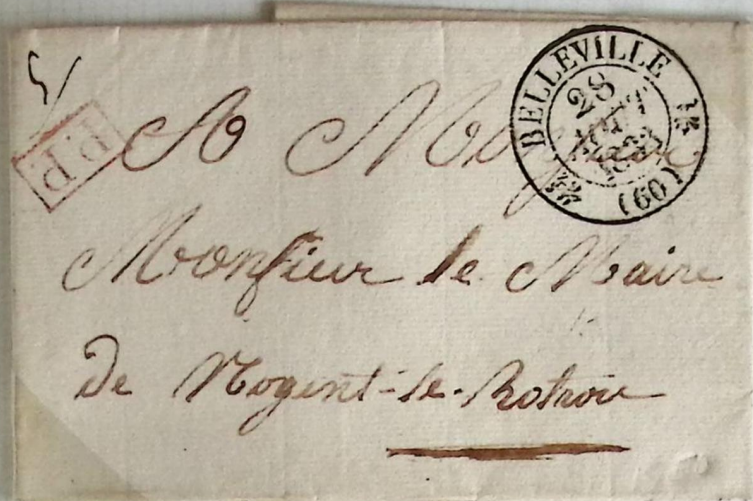 P.P.
BELLEVILLE
28
AOUT
(60)
A Monsieur
Monsieur le Maire
De Nogent-le-Rotrou